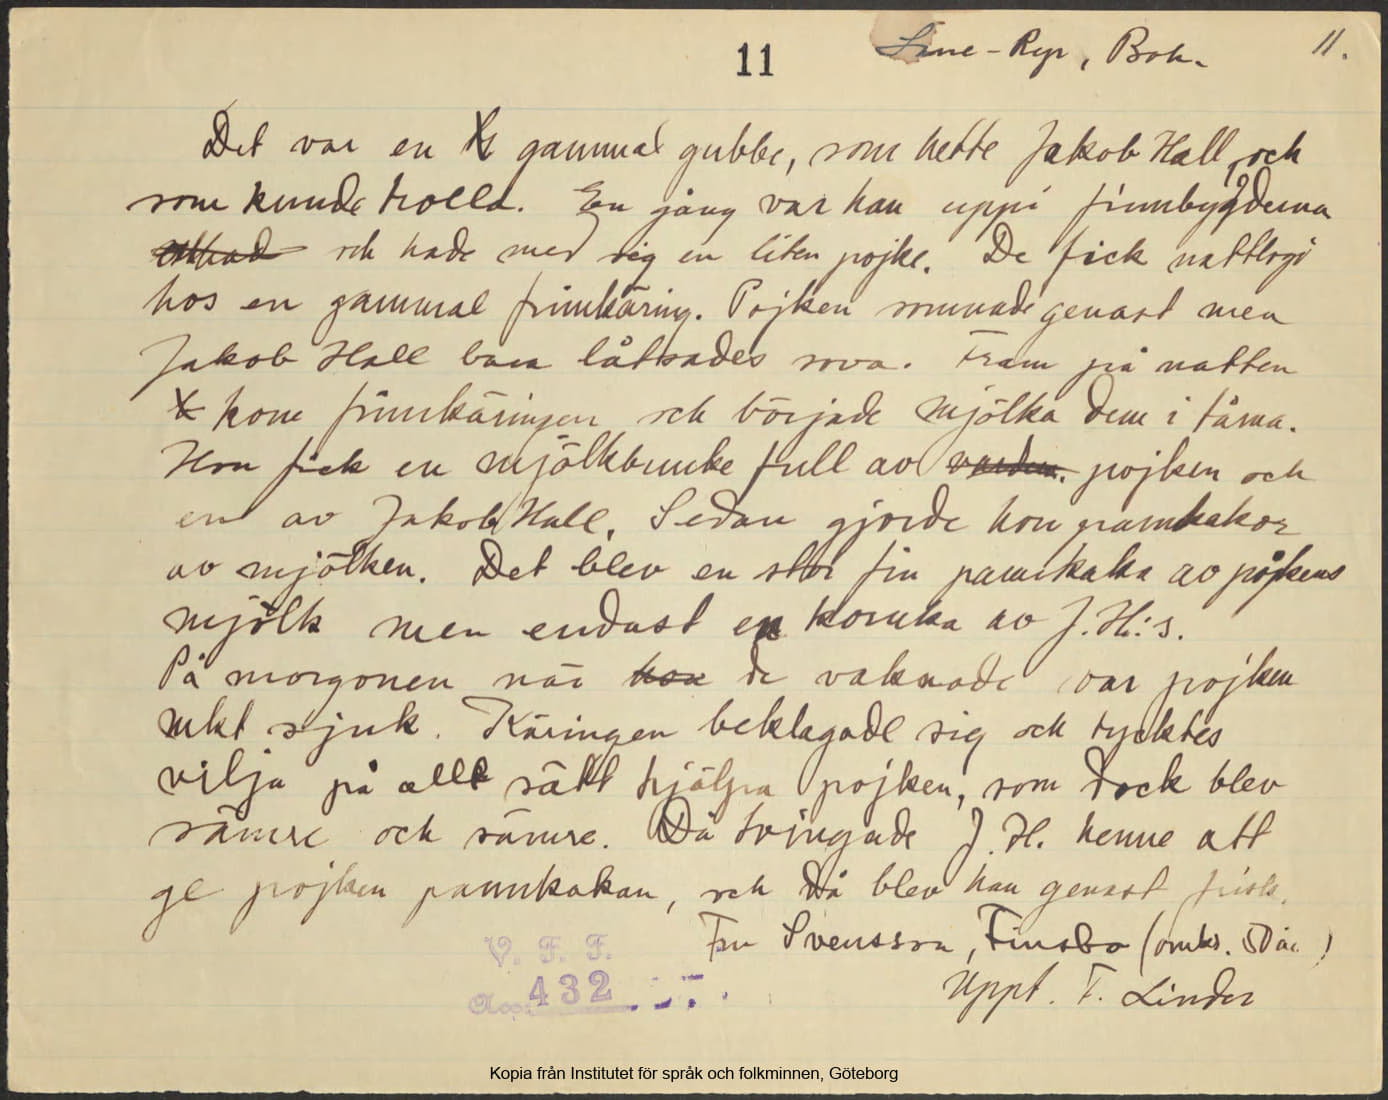 11 Lane-Ryr, Boh. 11.
Det var en gammal gubbe, som hette Jakob Hall, och
som kunde trolla. En gång var han uppi finnbygderna
och hade med sig en liten pojke. De fick nattlogi
hos en gammal finnkäring. Pojken somnade genast men
Jakob Hall bara låtsades sova. Fram på natten
kom finnkäringen och började mjölka dem i tårna.
Hon fick en mjölkbunke full av pojken och
en av Jakob Hall. Sedan gjorde hon pannkakor
av mjölken. Det blev en stor fin pannkaka av pojkens
mjölk men endast en komka av J. H.:s.
På morgonen när hon de vaknade var pojken
mkt sjuk. Käringen beklagade sig och tycktes
vilja på allt sätt hjälpa pojken, som dock blev
sämre och sämre. Då tvingade J. H. henne att
ge pojken pannkakan, och då blev han genast frisk.
Fru Svensson, Finsbo (omkr. 50 år)
Uppt. F. Linder
V. F. F.
Acc. 432
Kopia från Institutet för språk och folkminnen, Göteborg